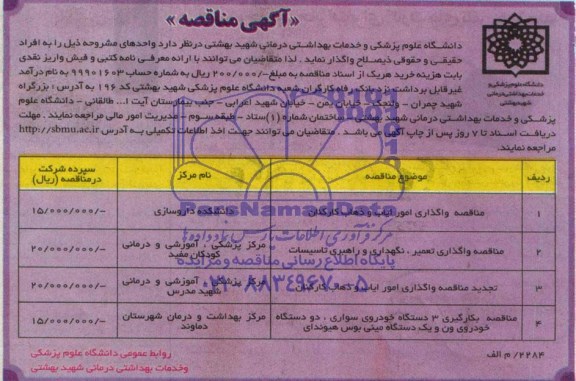 «آگهی مناقصه»
دانشگاه علوم پزشکی و
خدمات بهداشتی درمانی
شهید بهشتی
دانشگاه علوم پزشکی و خدمات بهداشتی درمانی شهید بهشتی درنظر دارد واحدهای مشروحه ذیل را به افراد
حقیقی و حقوقی ذیصلاح واگذار نماید . لذا متقاضیان می توانند با ارائه معرفی نامه کتبی و فیش واریز نقدی
بابت هزینه خرید هریک از اسناد مناقصه به مبلغ -/۲۰۰/۰۰۰ ریال به شماره حساب ۹۹۹۰۱۶۰۳ به نام درآمد
غیرقابل برداشت نزد بانک رفاه کارگران شعبه دانشگاه علوم پزشکی شهید بهشتی کد ۱۹۶ به آدرس : بزرگراه
شهید چمران - ولنجک - خیابان یمن - خیابان شهید اعرابی - جنب بیمارستان آیت ا... طالقانی - دانشگاه علوم
پزشکی و خدمات بهداشتی درمانی شهید بهشتی - ساختمان شماره (۱) ستاد - طبقه سوم - مدیریت امور مالی مراجعه نمایند . مهلت
دریافت اسناد تا ۷ روز پس از چاپ آگهی می باشد . متقاضیان می توانند جهت اخذ اطلاعات تکمیلی به آدرس http://sbmu.ac.ir
مراجعه نمایند.
ردیف موضوع مناقصه نام مرکز سپرده شرکت درمناقصه (ریال)
۱ مناقصه واگذاری امور ایاب و ذهاب کارکنان دانشکده داروسازی -/۱۵/۰۰۰/۰۰۰
۲ مناقصه واگذاری تعمیر ، نگهداری و راهبری تاسیسات مرکز پزشکی ، آموزشی و درمانی کودکان مفید -/۲۰/۰۰۰/۰۰۰
۳ تجدید مناقصه واگذاری امور ایاب و ذهاب کارکنان مرکز پزشکی ، آموزشی و درمانی شهید مدرس -/۲۰/۰۰۰/۰۰۰
۴ مناقصه بکارگیری ۳ دستگاه خودروی سواری ، دو دستگاه خودروی ون و یک دستگاه مینی بوس هیوندای مرکز بهداشت و درمان شهرستان دماوند -/۱۵/۰۰۰/۰۰۰
ParsNamadData
مرکز فرآوری اطلاعات پارس نماد داده ها
پایگاه اطلاع رسانی مناقصه و مزایده
۰۲۱-۸۸۳۴۹۶۷۰-۵
۲۲۸۴/ م الف
روابط عمومی دانشگاه علوم پزشکی
وخدمات بهداشتی درمانی شهید بهشتی